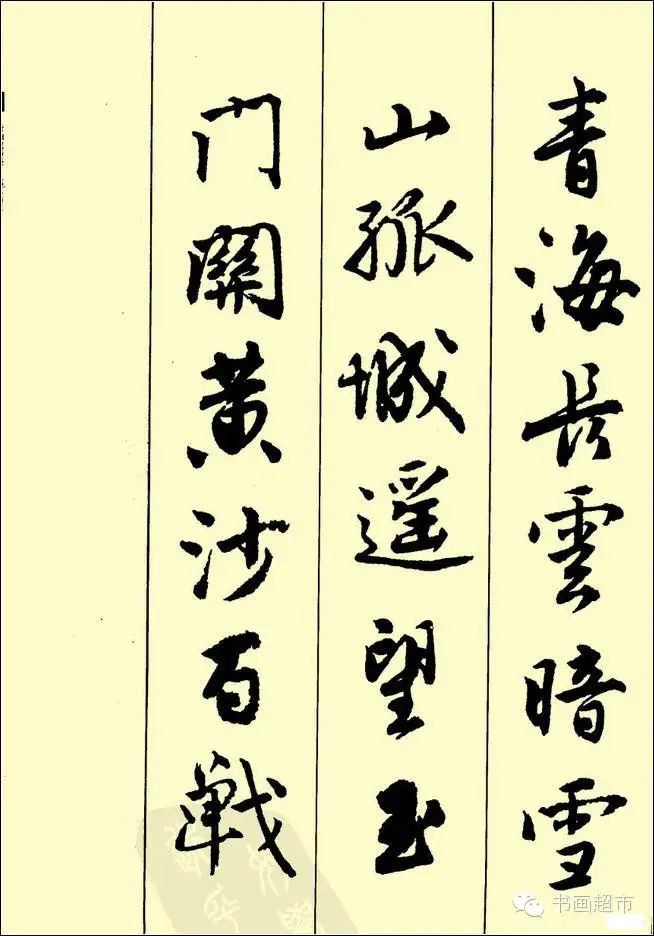 青海長雲暗雪
山孤城遥望玉
门關黄沙百戰
书画超市